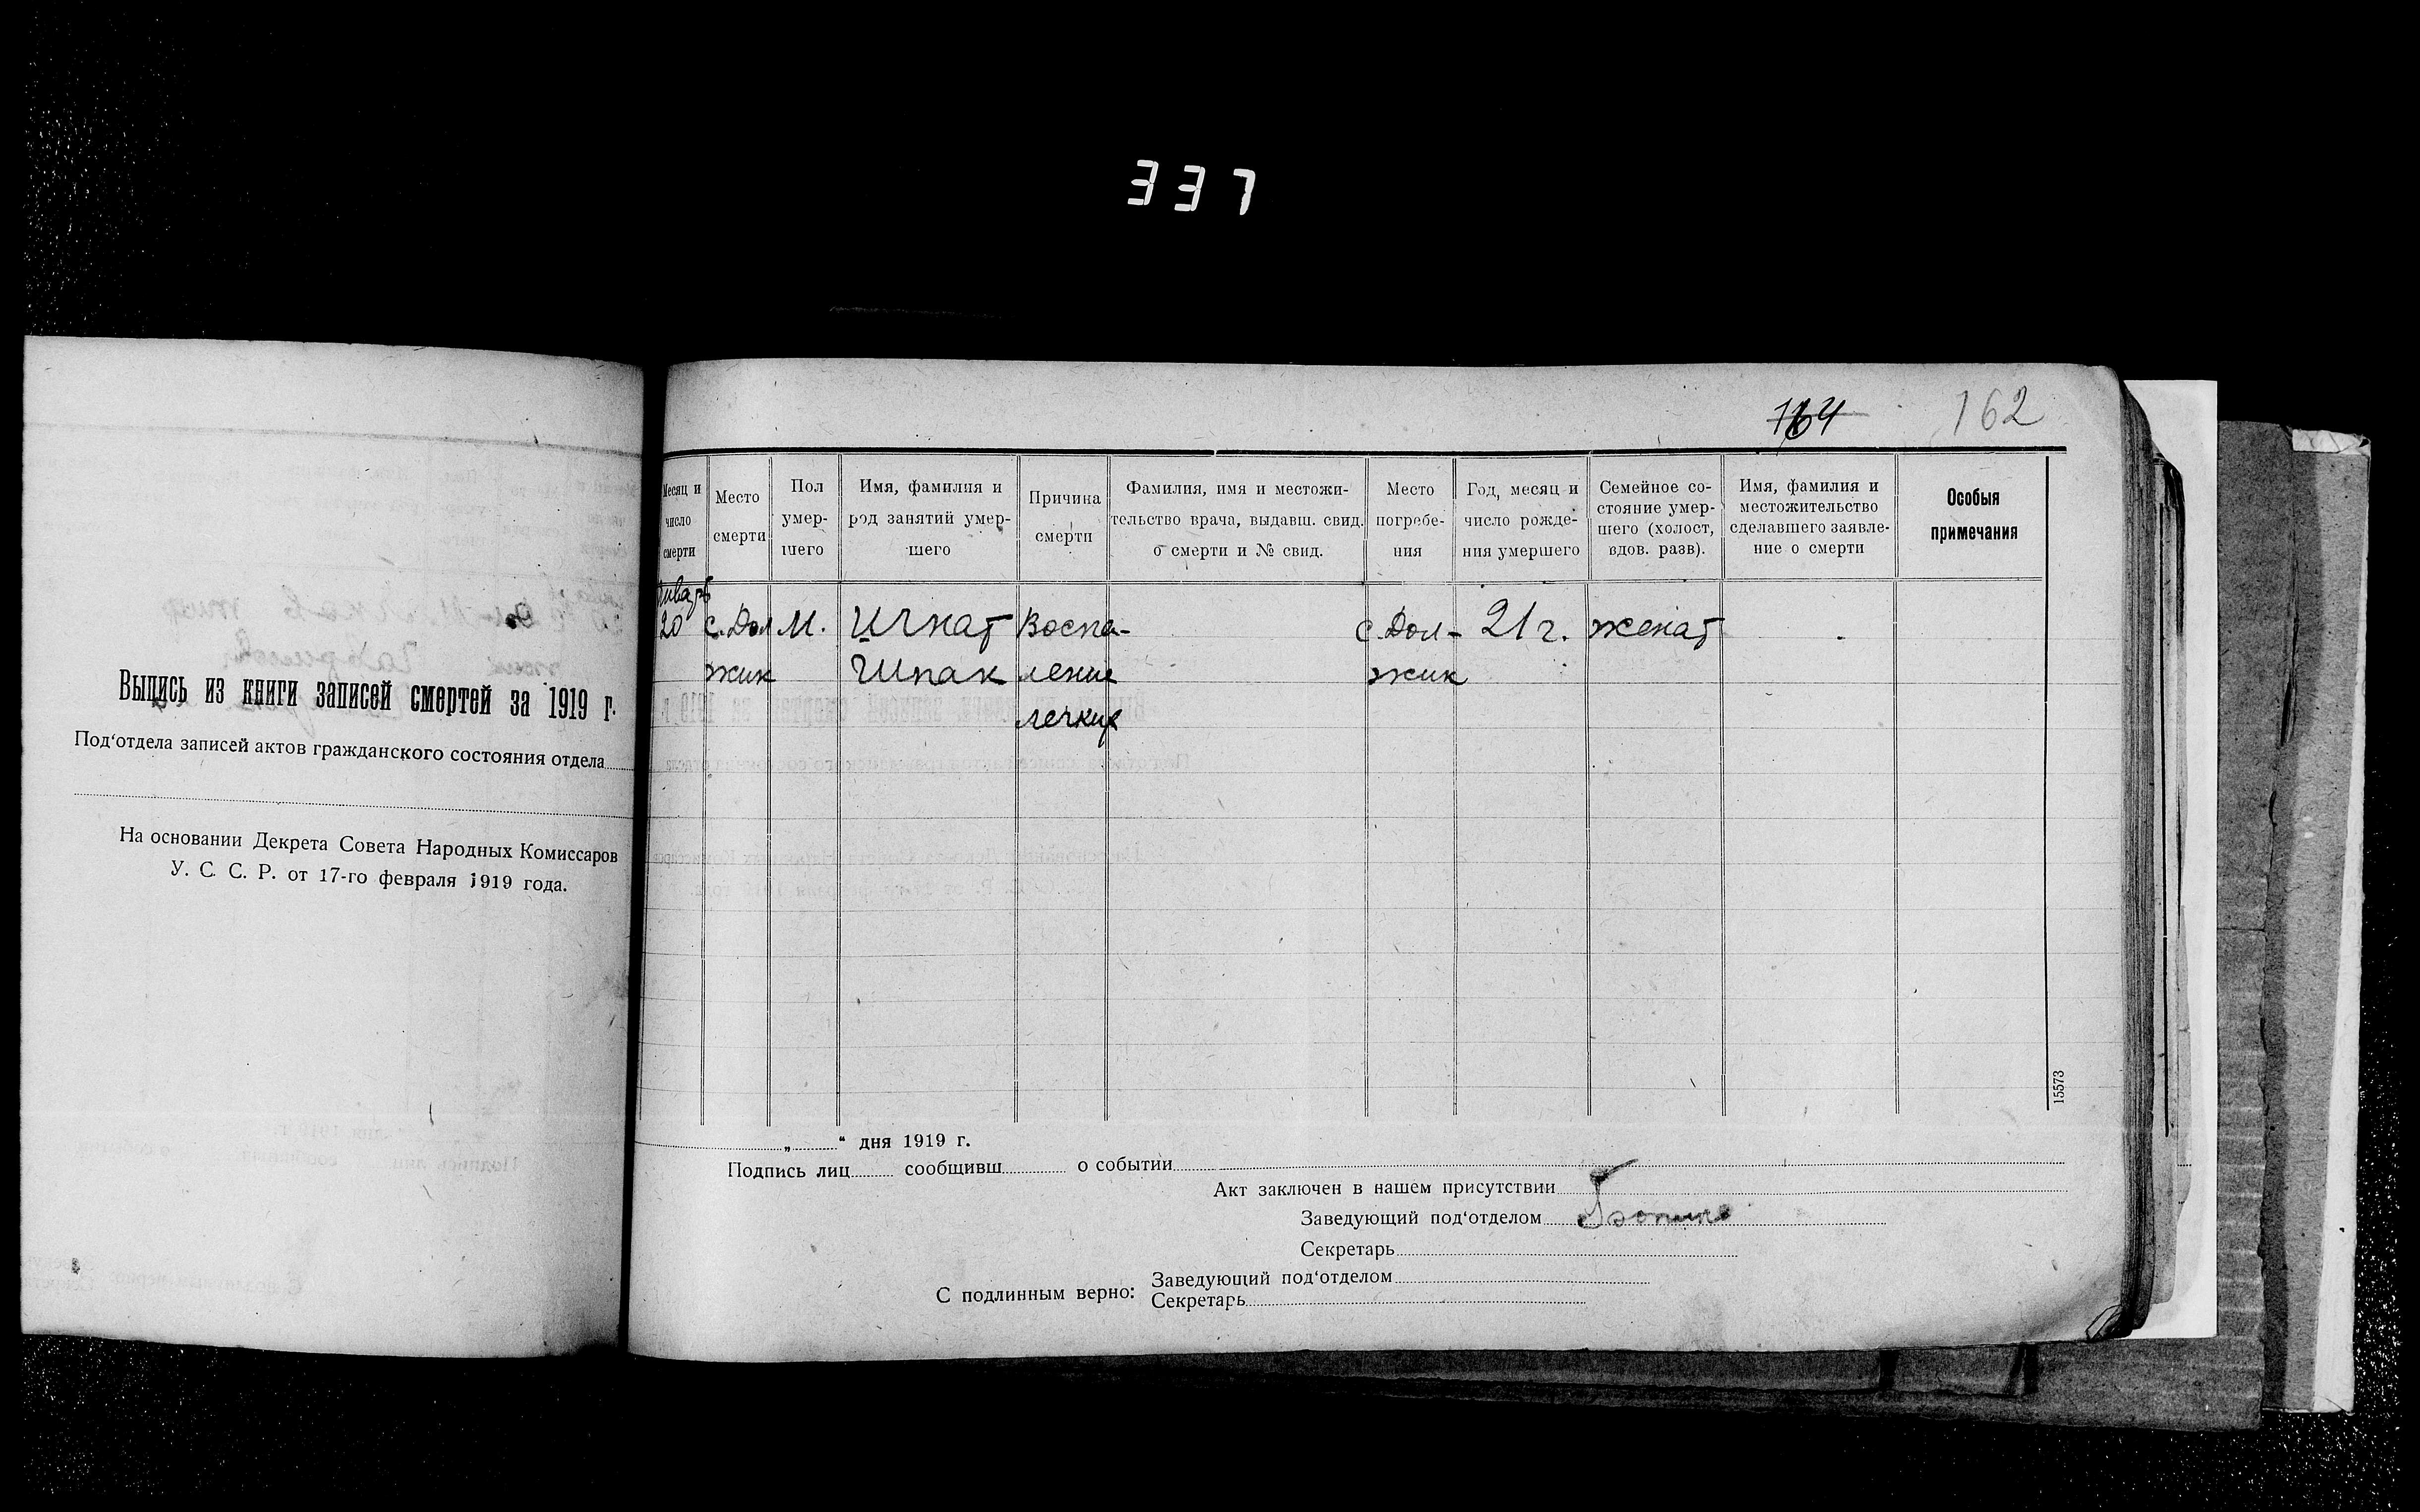 337
164 162
Выпись из книги записей смертей за 1919 г.
Под‘отдела записей актов гражданского состояния отдела
На основании Декрета Совета Народных Комиссаров
У. С. С. Р. от 17-го февраля 1919 года.
Месяц и число смерти
Место смерти
Пол умер-
шего
Имя, фамилия и
род занятий умер-
шего
Причина
смерти
Фамилия, имя и местожи-
тельство врача, выдавш. свид.
о смерти и № свид.
Место
погребе-
ния
Год, месяц и
число рожде-
ния умершего
Семейное со-
стояние умер-
шего (холост,
вдов. разв).
Имя, фамилия и
местожительство
сделавшего заявле-
ние о смерти
Особыя
примечания
Январь
20 с. Дол М. Игнат Воспа- с. Дол- 21 г. женат
жик Шпак ление жик
легких
15573
„ “ дня 1919 г.
Подпись лиц сообщивш о событии
Акт заключен в нашем присутствии
Заведующий под‘отделом
Секретарь
С подлинным верно: Заведующий под‘отделом
Секретарь